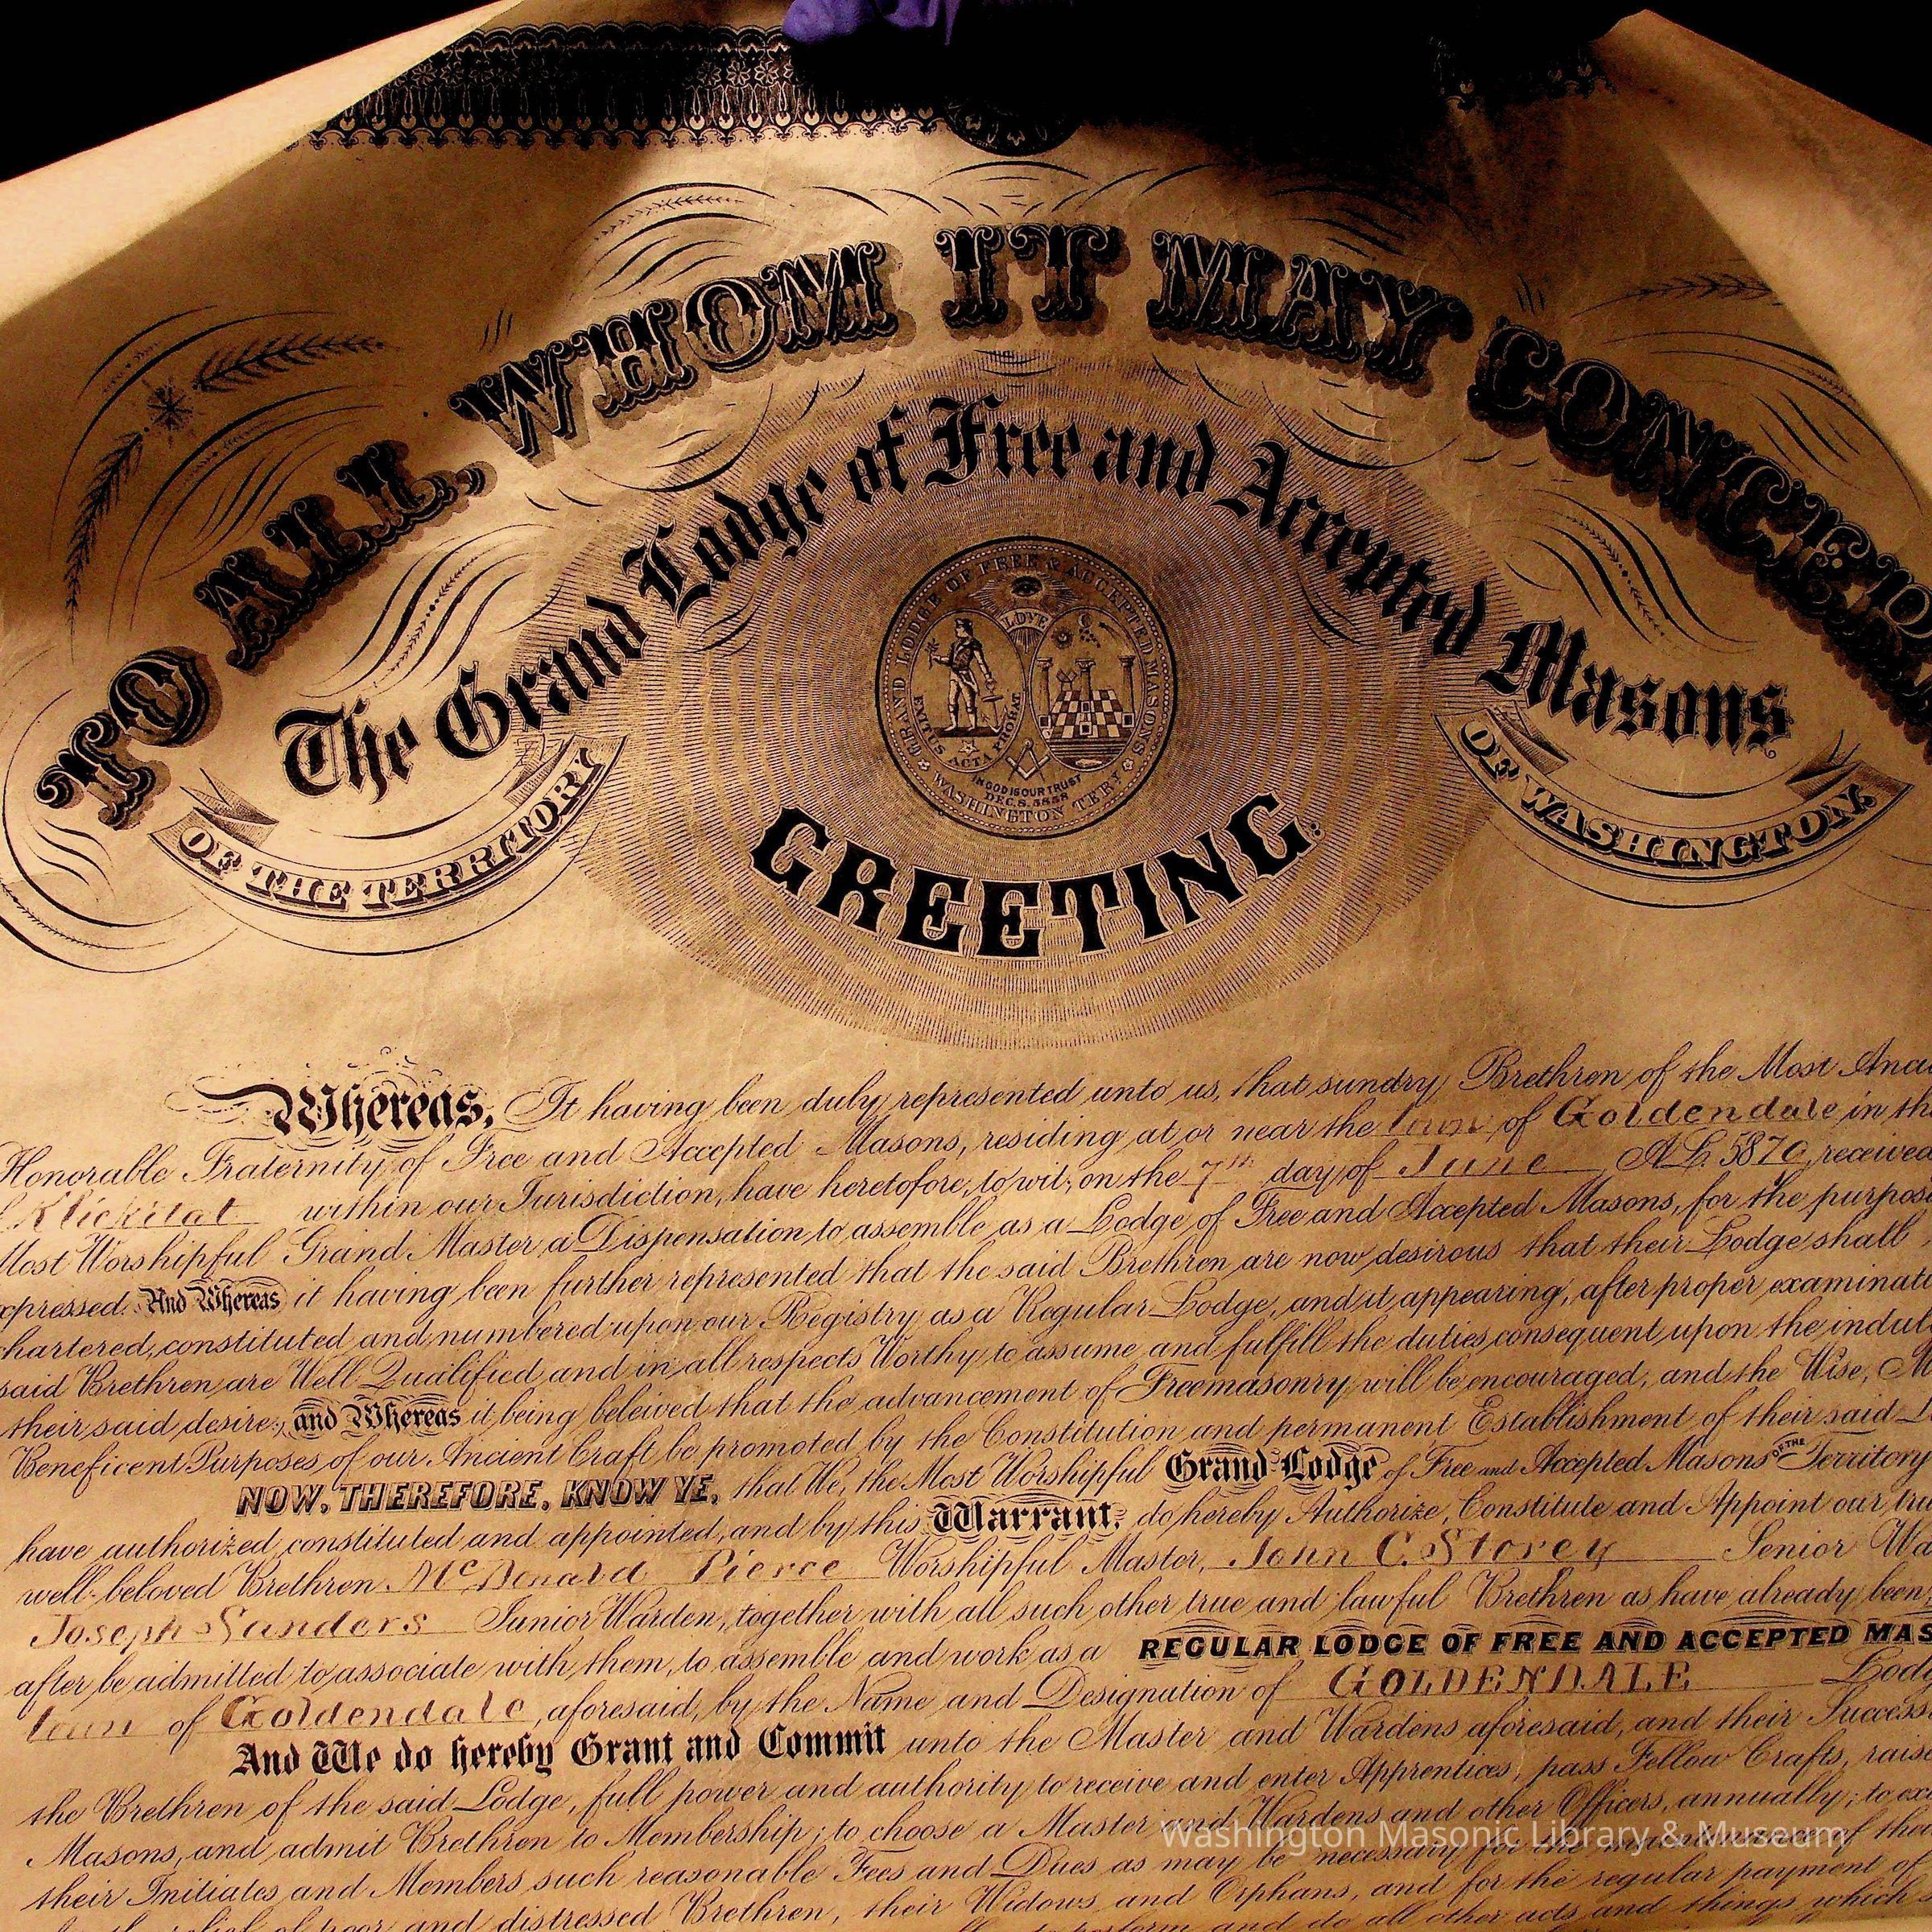 TO ALL, WHOM IT MAY CONCERN
The Grand Lodge of Free and Accepted Masons
OF THE TERRITORY OF WASHINGTON.
GRAND LODGE OF FREE & ACCEPTED MASONS
LOVE
EXITUS ACTA PROBAT
IN GOD IS OUR TRUST
DEC. 8. 5858
WASHINGTON TERY
GREETING:
Whereas, It having been duly represented unto us, that sundry Brethren of the Most
Honorable Fraternity of Free and Accepted Masons, residing at or near the town of Goldendale in
Klickitat within our Jurisdiction, have heretofore, to wit, on the 7th day of June A.L. 5876, received
Most Worshipful Grand Master a Dispensation to assemble as a Lodge of Free and Accepted Masons, for the
expressed. And Whereas it having been further represented that the said Brethren are now desirous that their Lodge shall
chartered, constituted and numbered upon our Registry as a Regular Lodge, and it appearing, after proper
said Brethren are Well Qualified and in all respects Worthy to assume and fulfill the duties consequent upon the
their said desire; and Whereas it being beleived that the advancement of Freemasonry will be encouraged, and the Wise,
Beneficent Purposes of our Ancient Craft be promoted by the Constitution and permanent Establishment of their said
NOW, THEREFORE, KNOW YE, that We, the Most Worshipful Grand Lodge of Free and Accepted Masons OF THE Territory
have authorized, constituted and appointed, and by this Warrant, do hereby Authorize, Constitute and Appoint our
well-beloved Brethren McDonald Pierce Worshipful Master, John C. Storey Senior
Joseph Sanders Junior Warden, together with all such other true and lawful Brethren as have already been,
after be admitted to associate with them, to assemble and work as a REGULAR LODGE OF FREE AND ACCEPTED MAS
town of Goldendale, aforesaid, by the Name and Designation of GOLDENDALE
And We do hereby Grant and Commit unto the Master and Wardens aforesaid, and their
the Brethren of the said Lodge, full power and authority to receive and enter Apprentices, pass Fellow Crafts,
Masons, and admit Brethren to Membership; to choose a Master and Wardens and other Officers, annually; to
their Initiates and Members such reasonable Fees and Dues as may be necessary for the of
poor and distressed Brethren, their Widows and Orphans, and for the regular payment of
to perform and do all other acts and things which
Washington Masonic Library & Museum